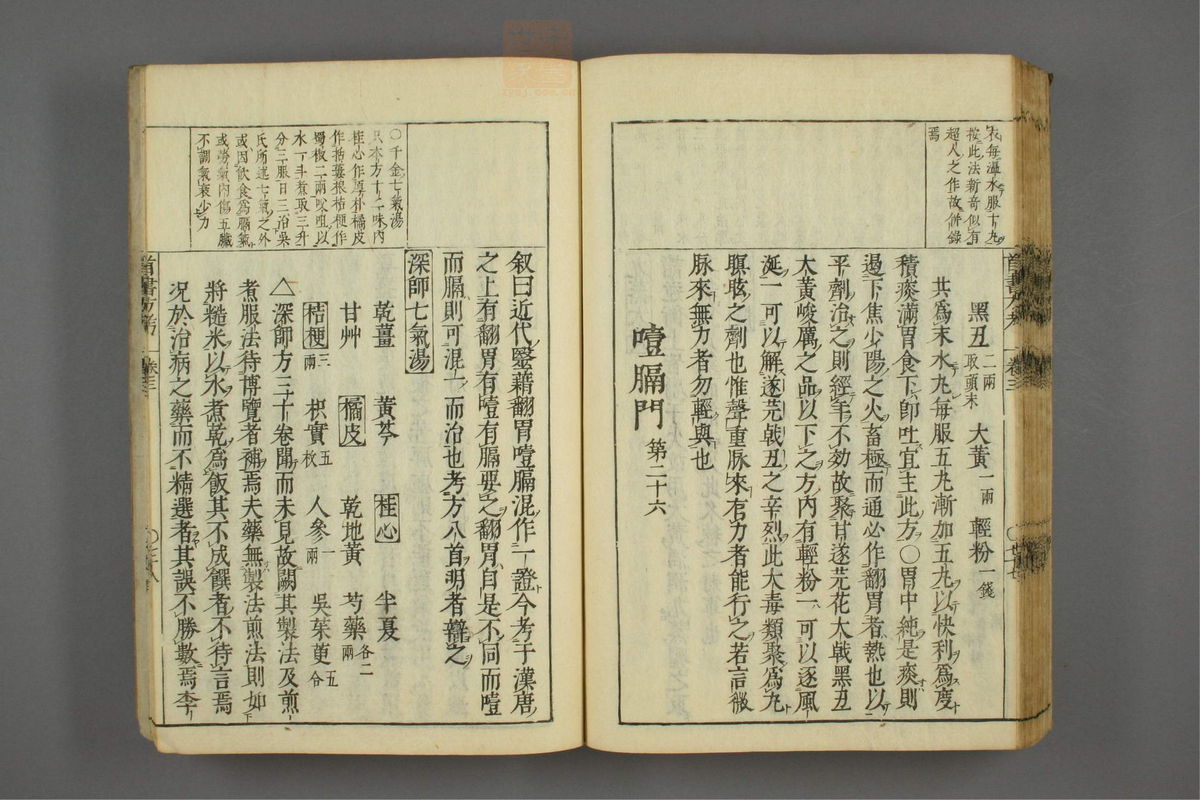 衣每溫水服十丸
按此法新奇似有
超人之作故併錄
焉
黑丑二兩取頭末 大黃一兩 輕粉一錢
共爲末水丸每服五丸漸加五丸以快利爲度
積痰滿胃食下卽吐宜主此方○胃中純是痰則
遏下焦少陽之火畜極而通必作翻胃者熱也以
平劑治之則經年不効故聚甘遂芫花大戟黑丑
大黃峻厲之品以下之方內有輕粉一可以逐風
涎一可以解遂芫戟丑之辛烈此大毒類聚爲丸
瞑眩之劑也惟聲重脉來有力者能行之若言微
脉來無力者勿輕與也
噎膈門 第二十六
○千金七氣湯
只本方十二味內
桂心作厚朴橘皮
作括蔞根桔梗作
蜀椒二兩㕮咀以
水一斗煮取三升
分三服日三治吳
氏所述七氣之外
或因飲食爲膈氣
或勞氣內傷五臟
不調氣衰少力
叙曰近代毉藉翻胃噎膈混作一證今考于漢唐
之上有翻胃有噎有膈要之翻胃自是不同而噎
而膈則可混一而治也考方八首明者辯之
深師七氣湯
乾薑 黃芩 桂心 半夏
甘艸 橘皮 乾地黃 芍藥各二兩
桔梗三兩 枳實五枚 人參一兩 吳茱萸五合
△深師方三十卷聞而未見故闕其製法及煎
煮服法待博覽者補焉夫藥無製法煎法則如
將糙米以水煮乾爲飯其不成饌者不待言焉
况於治病之藥而不精選者其誤不勝數焉李
卷三
卷三